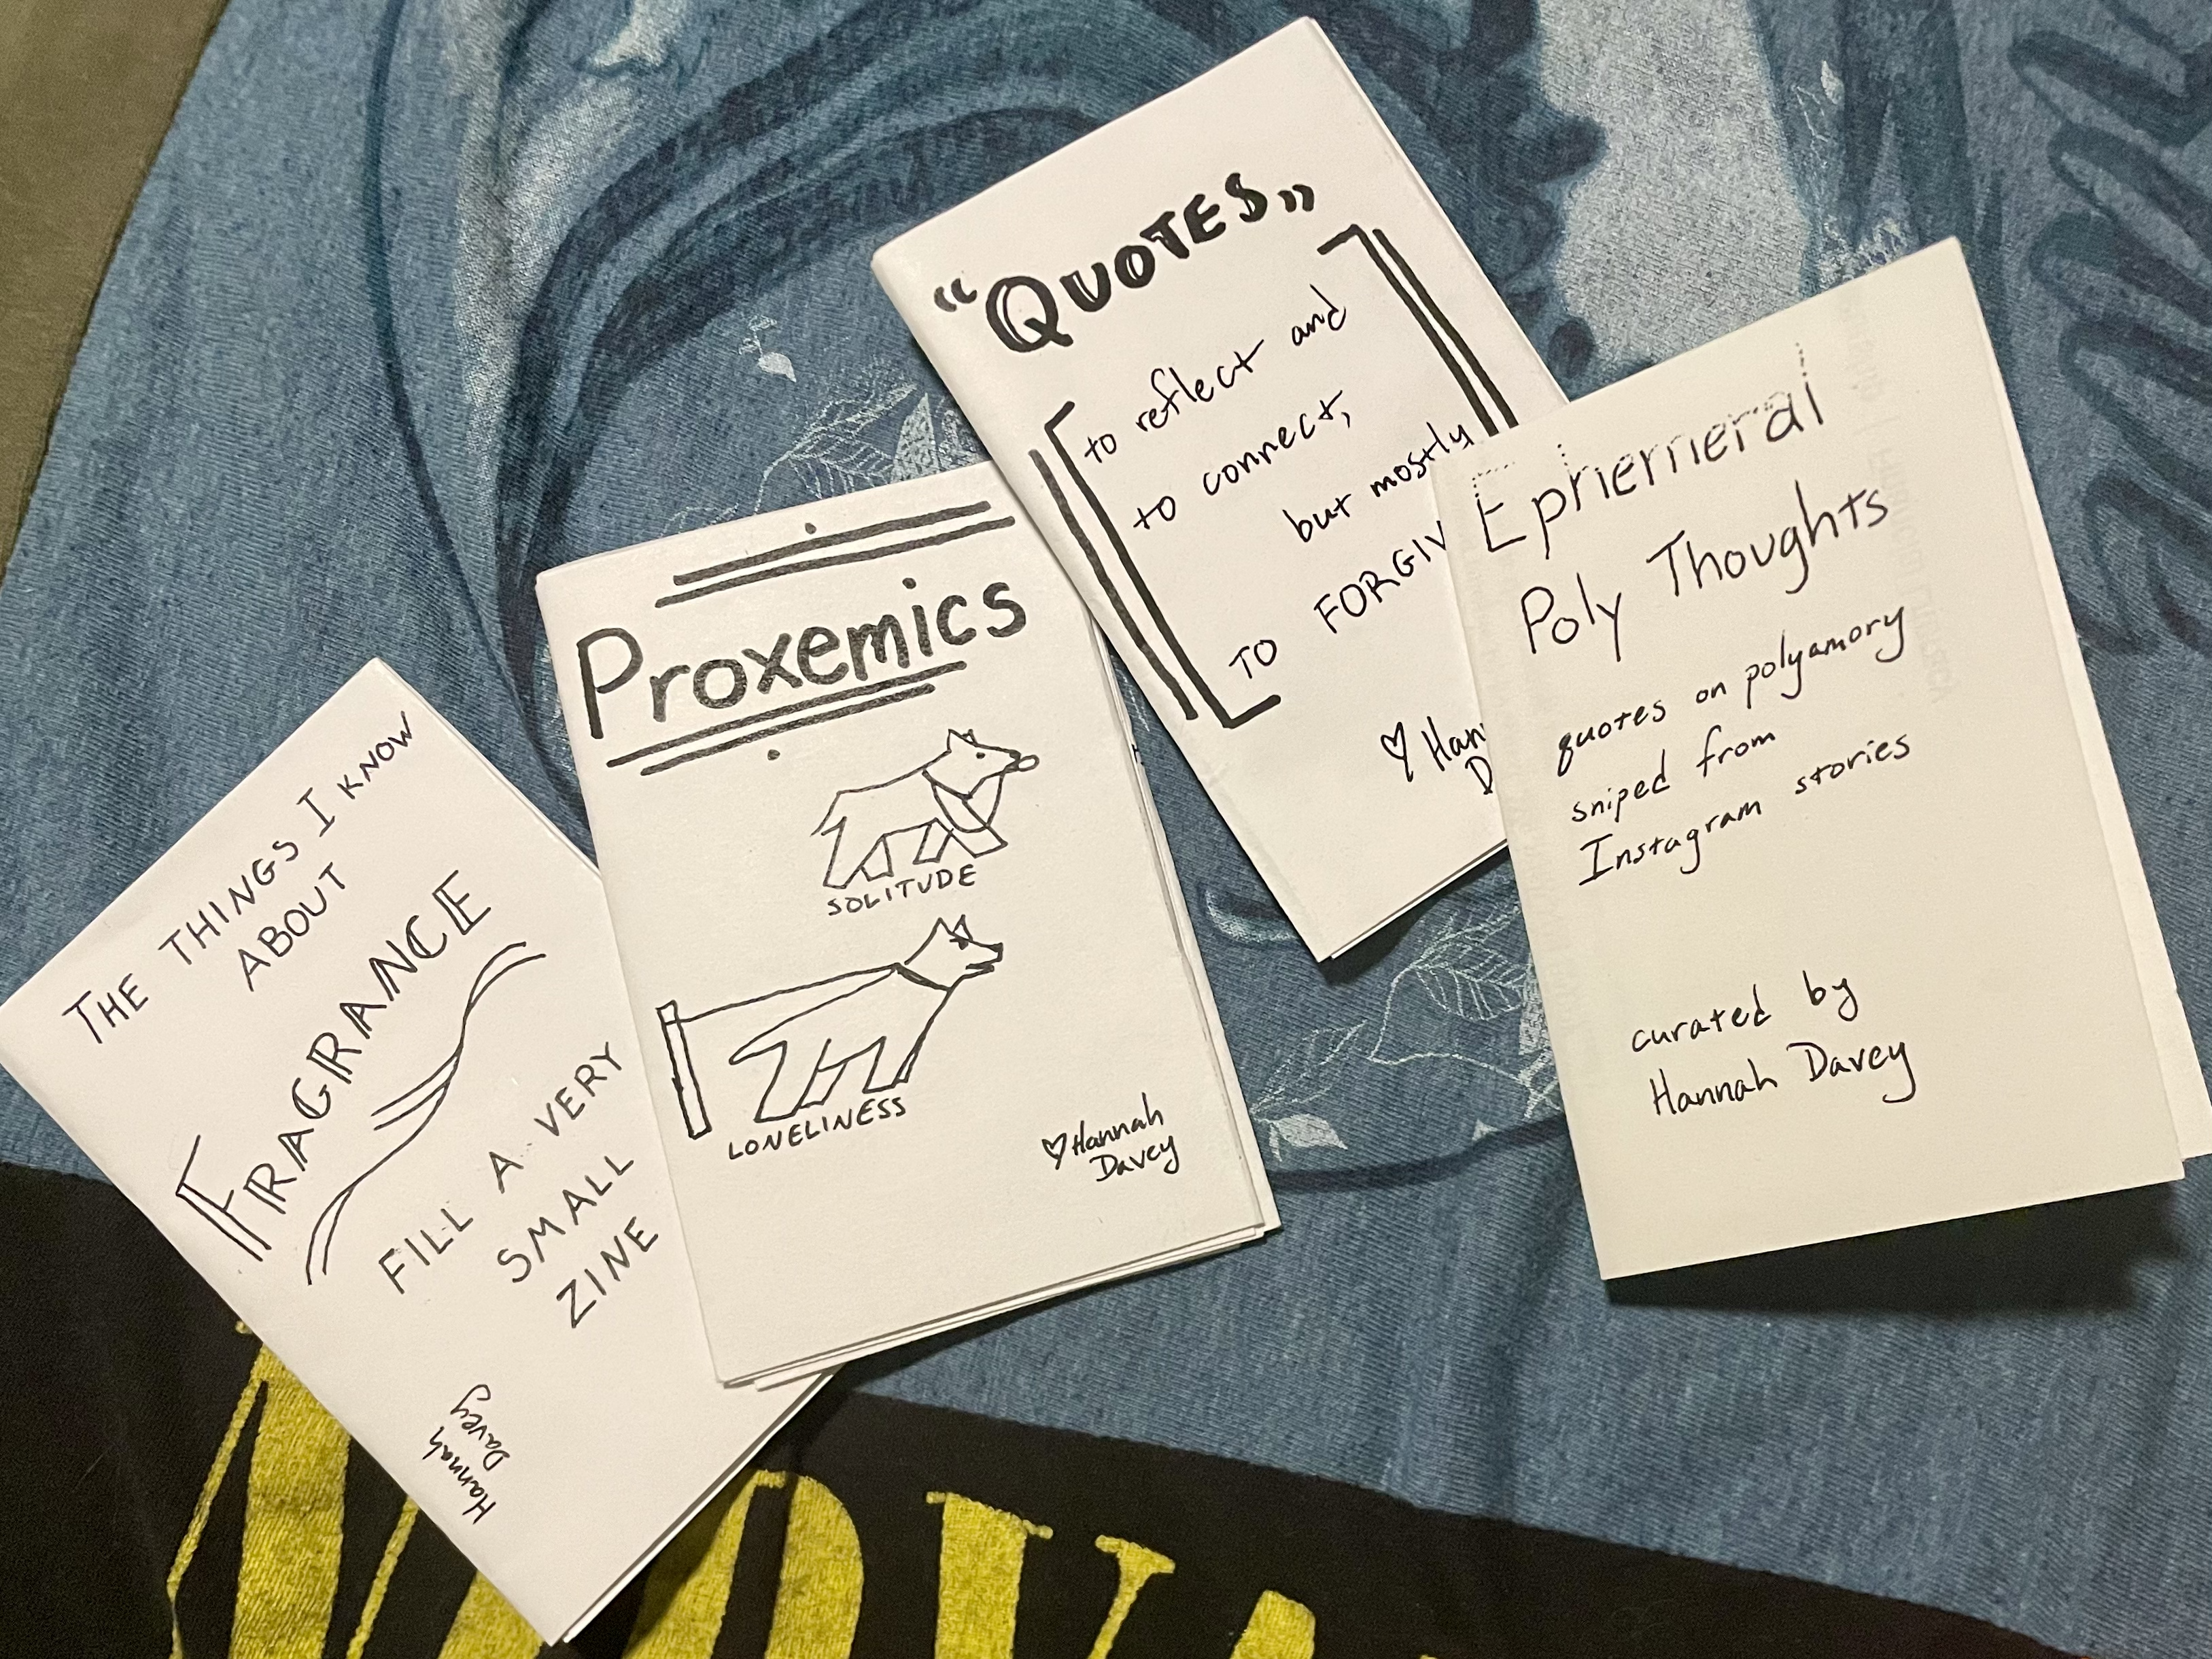 THE THINGS I KNOW
ABOUT
FRAGRANCE
FILL A VERY
SMALL
ZINE
Hannah
Davey
Proxemics
SOLITUDE
LONELINESS
Hannah
Davey
"QUOTES"
to reflect and
to connect,
but mostly
TO FORGIV
Han
D
Ephemeral
Poly Thoughts
quotes on polyamory
sniped from
Instagram stories
curated by
Hannah Davey